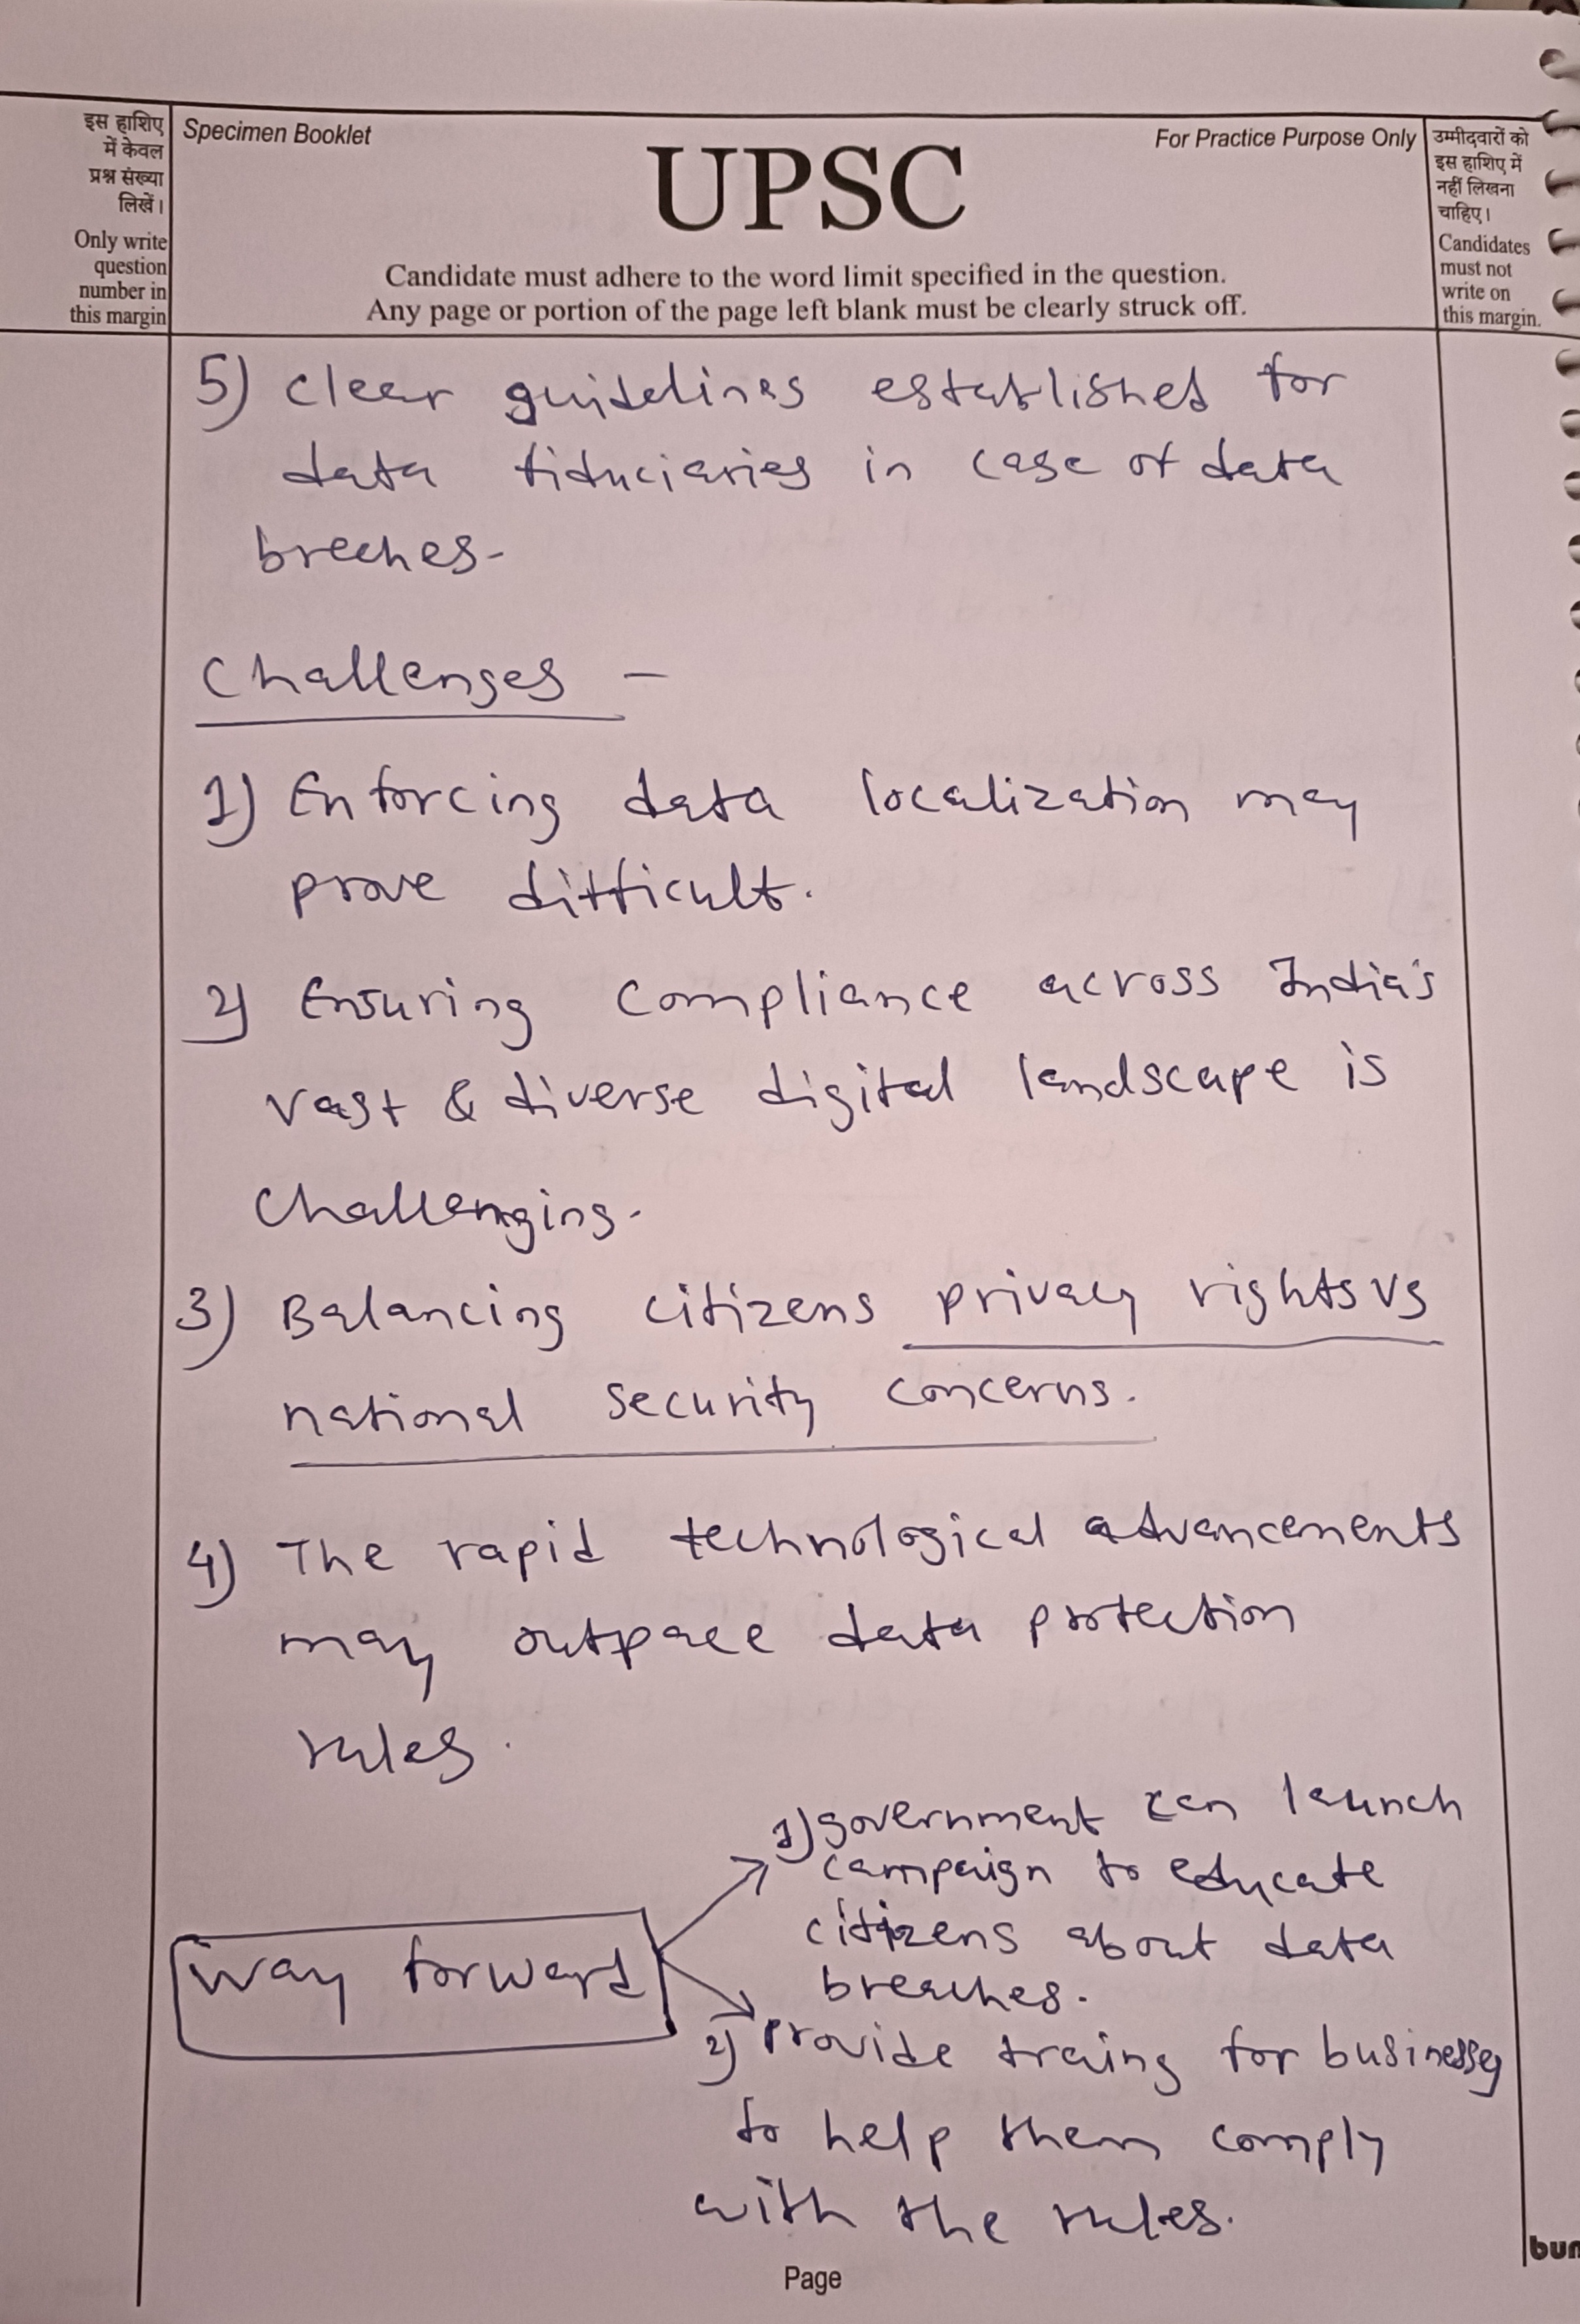 इस हाशिए
में केवल
प्रश्न संख्या
लिखें।
Only write
question
number in
this margin
Specimen Booklet
UPSC
For Practice Purpose Only
Candidate must adhere to the word limit specified in the question.
Any page or portion of the page left blank must be clearly struck off.
उम्मीदवारों को
इस हाशिए में
नहीं लिखना
चाहिए।
Candidates
must not
write on
this margin.
5) Clear guidelines established for
data fiduciaries in case of data
breches.
Challenges -
1) Enforcing data localization may
prove difficult.
2) Ensuring compliance across India's
vast & diverse digital landscape is
challenging.
3) Balancing citizens privacy rights vs
national security concerns.
4) The rapid technological advancements
may outpace data protection
rules.
Way forward
1) government can launch
campaign to educate
citizens about data
breaches.
2) Provide traing for businesses
to help them comply
with the rules.
Page